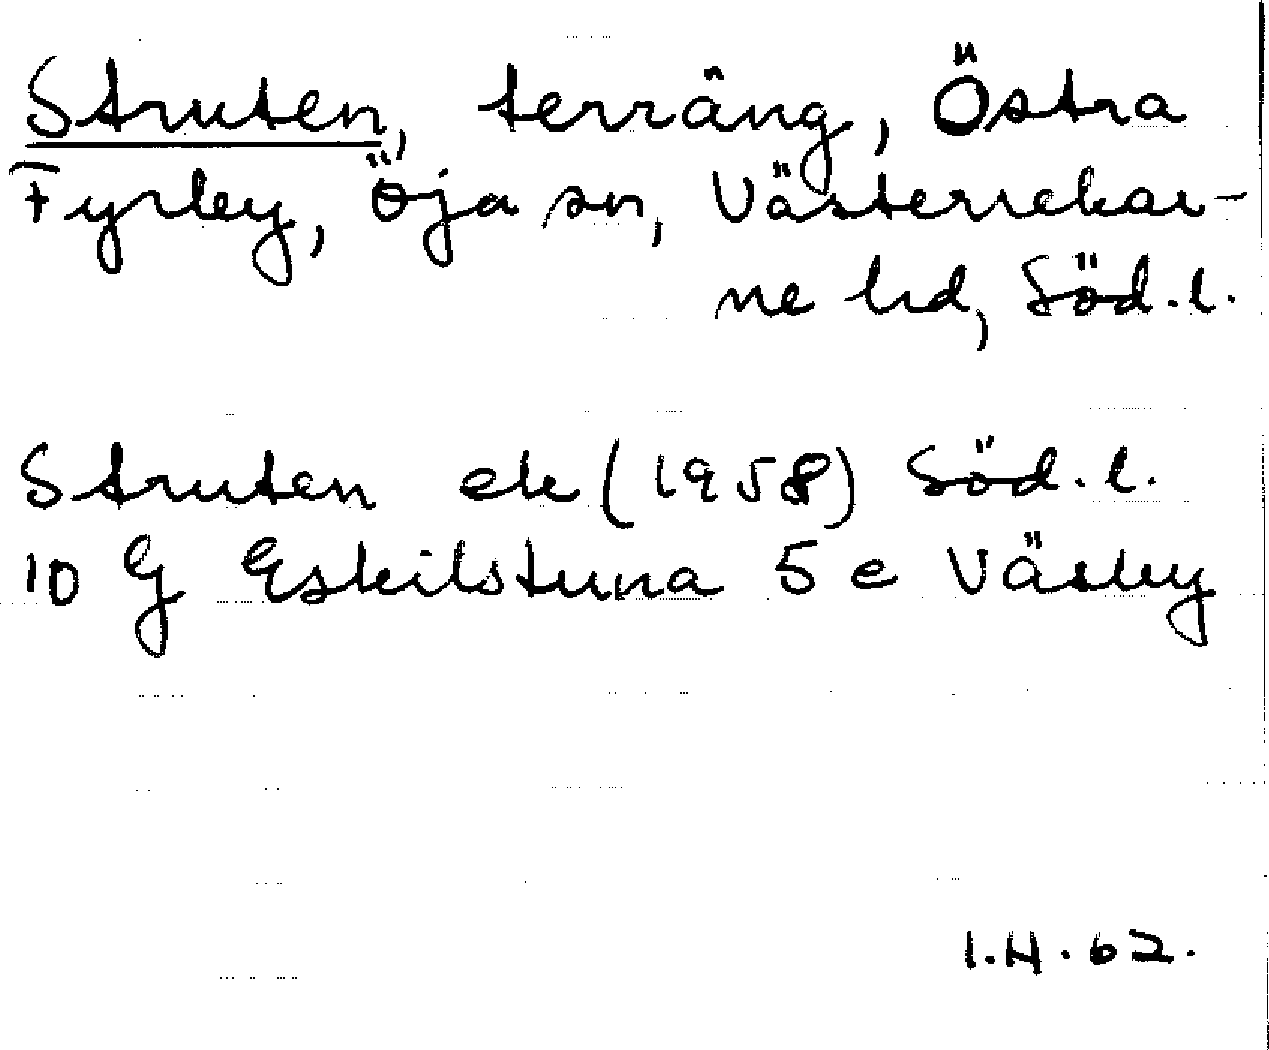 Struten, terräng, Östra
Fyrby, Öja sn, Västerrekar-
ne hd, Söd.l.
Struten ek (1958) Söd.l.
10 G Eskilstuna 5 e Väsby
1.H.62.